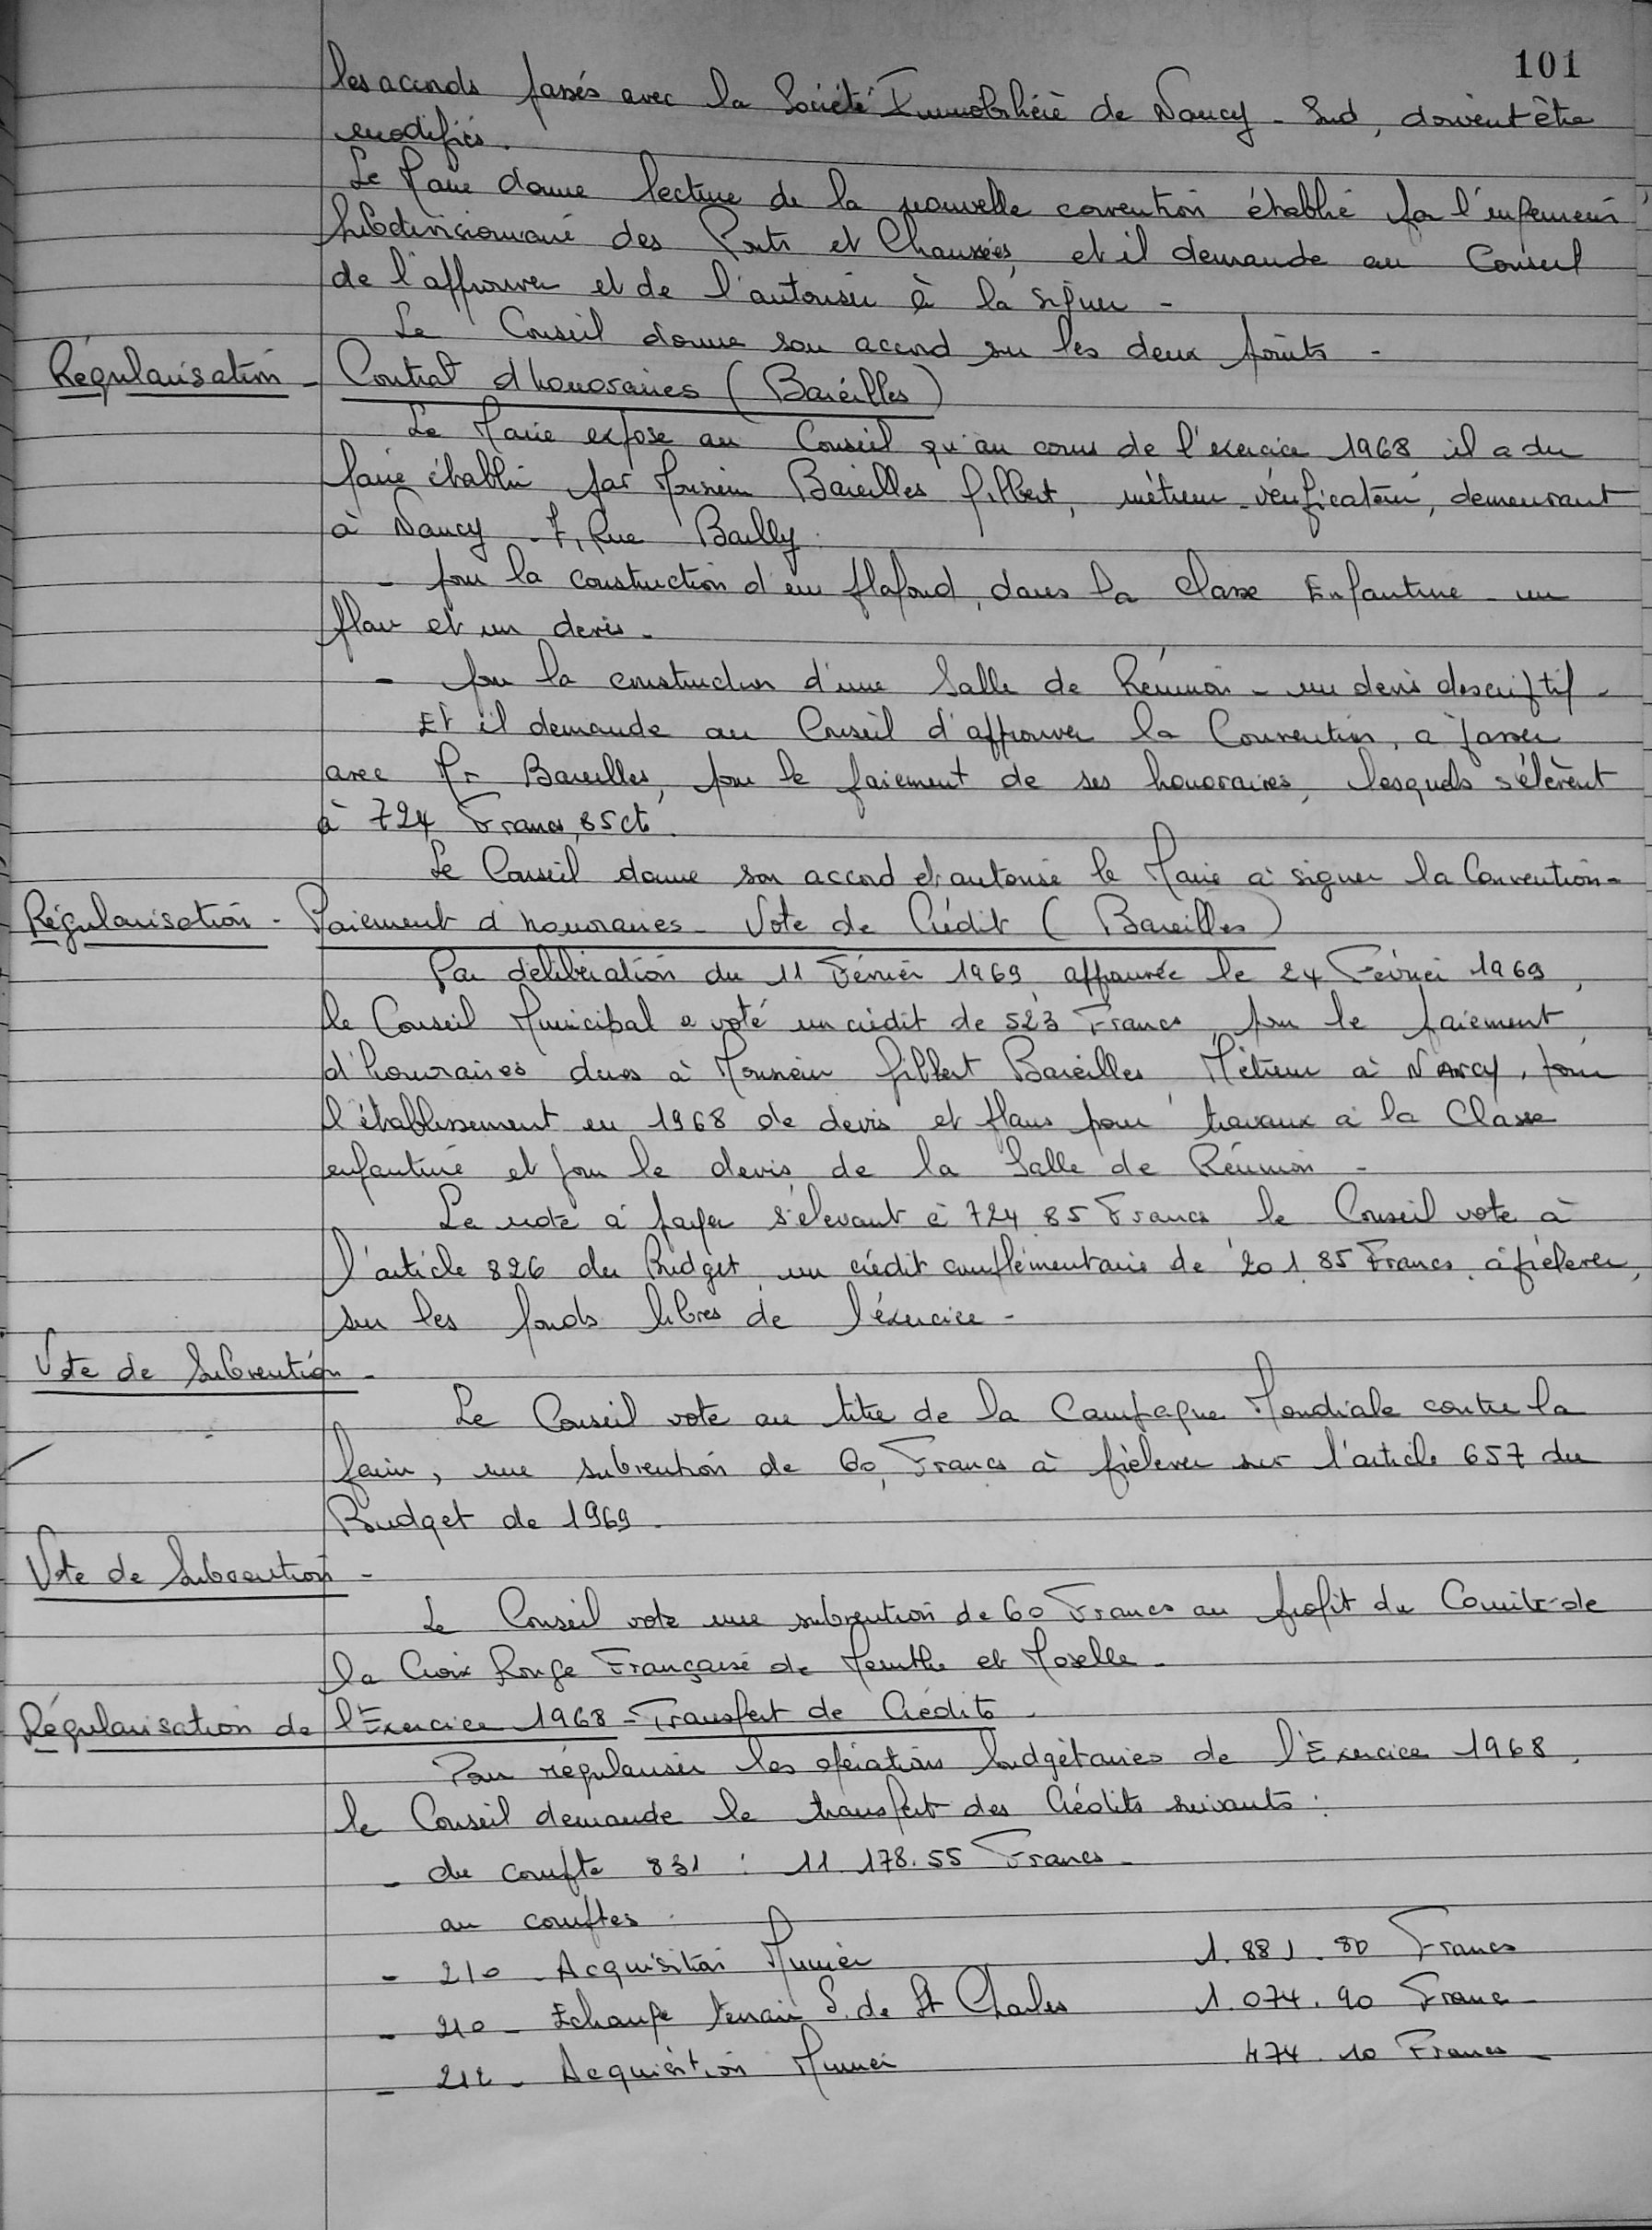 101
les accords passés avec la Société Immobilière de Nancy - Sud, doivent être
modifiés.
Le Maire donne lecture de la nouvelle convention établie par l'ingénieur
Subdivisionnaire des Ponts et Chaussées, et il demande au Conseil
de l'approuver et de l'autoriser à la signer -
Le Conseil donne son accord sur les deux points -
Régularisation - Contrat d'honoraires (Bareilles)
Le Maire expose au Conseil qu'au cours de l'exercice 1968 il a du
faire établir par Monsieur Bareilles Gilbert, métreur-vérificateur, demeurant
à Nancy - 7, Rue Bailly.
- pour la construction d'un plafond, dans la classe Enfantine - un
plan et un devis -
- pour la construction d'une Salle de Réunion - un devis descriptif -
Et il demande au Conseil d'approuver la Convention, à passer
avec Mr Bareilles, pour le paiement de ses honoraires, lesquels s'élèvent
à 724 Francs, 85 cts.
Le Conseil donne son accord et autorise le Maire à signer la Convention -
Régularisation - Paiement d'honoraires - Vote de Crédit (Bareilles)
Par délibération du 11 Février 1969, approuvée le 24 Février 1969,
le Conseil Municipal a voté un crédit de 523 Francs, pour le paiement
d'honoraires dues à Monsieur Gilbert Bareilles Métreur à Nancy, pour
l'établissement en 1968 de devis et plans pour travaux à la Classe
enfantine et pour le devis de la Salle de Réunion -
La note à payer s'élevant à 724.85 Francs le Conseil vote à
l'article 826 du Budget un crédit complémentaire de 201.85 Francs à prélever,
sur les fonds libres de l'exercice -
Vote de Subvention -
Le Conseil vote au titre de la Campagne Mondiale contre la
faim, une subvention de 60 Francs à prélever sur l'article 657 du
Budget de 1969.
Vote de Subvention -
Le Conseil vote une subvention de 60 Francs au profit du Comité de
la Croix Rouge Française de Meurthe et Moselle -
Régularisation de l'Exercice 1968 - Transfert de Crédits -
Pour régulariser les opérations budgétaires de l'Exercice 1968,
le Conseil demande le transfert des Crédits suivants :
- du compte 831 : 11.178.55 Francs -
au comptes :
- 210 - Acquisition Munier 1.881.80 Francs
- 210 - Echange terrain S. de St Charles 1.074.90 Francs -
- 212 - Acquisition Munier 474.10 Francs -